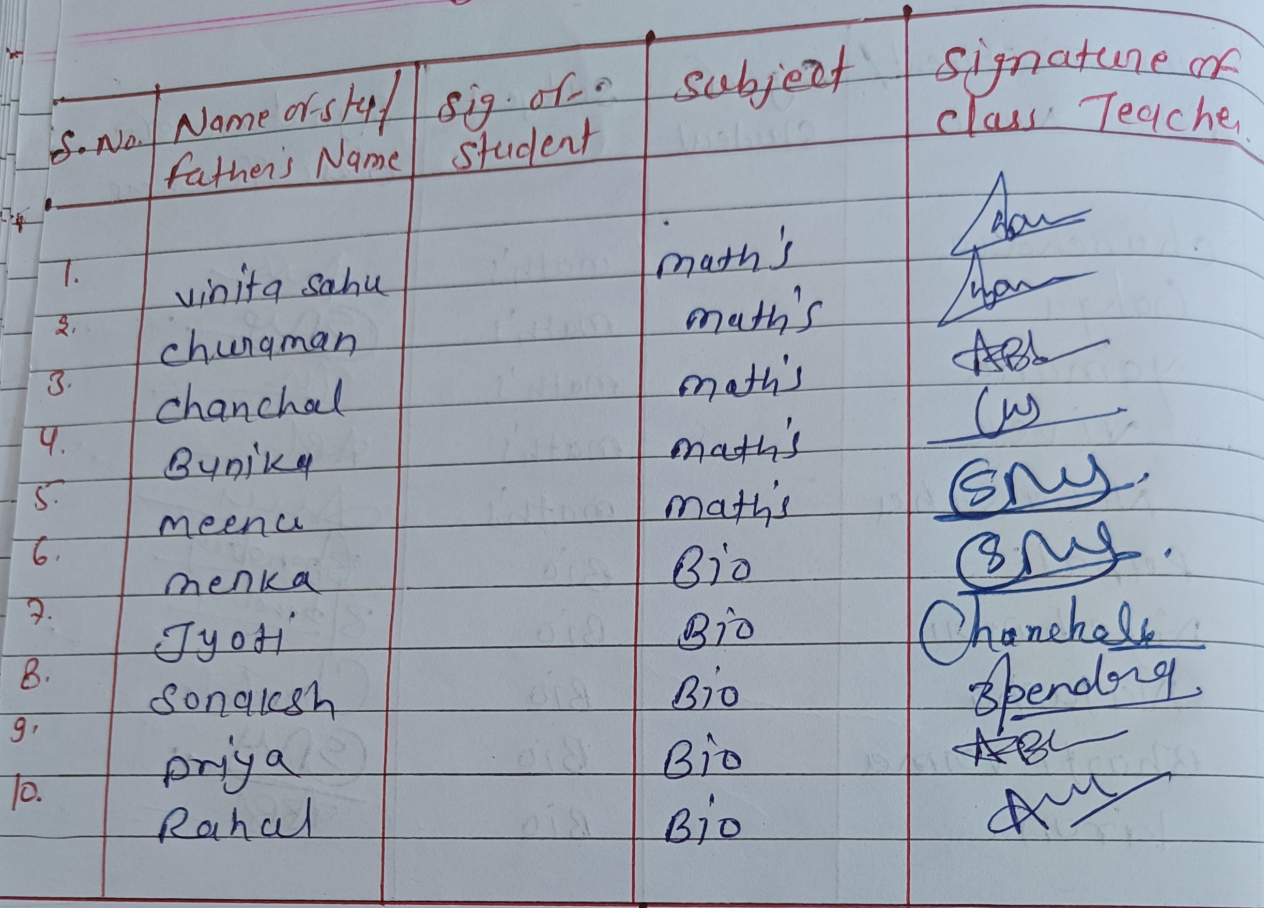 S.No. Name of stu/ Father's Name Sig. of Student Subject Signature of class Teacher
1. Vinita Sahu Math's
2. Churaman Math's
3. Chanchal Math's ABL
4. Bunika Math's
5. Meena Math's
6. Menka Bio
7. Jyoti Bio Chanchal
8. Sonaksh Bio
9. Priya Bio ABL
10. Rahul Bio